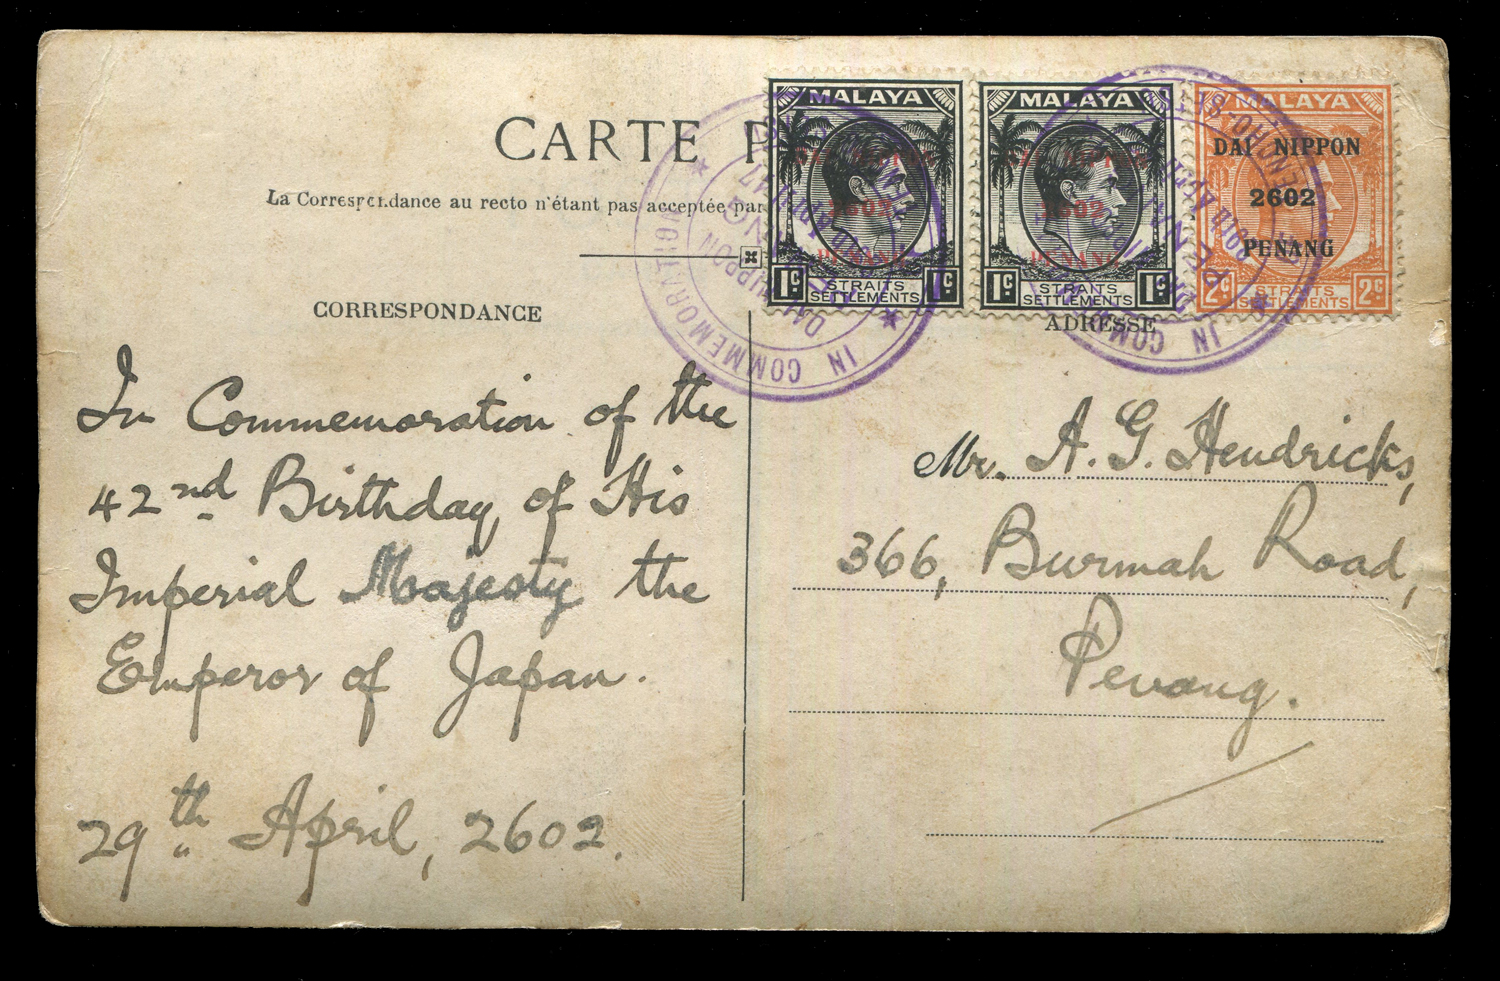 CARTE P
La Correspondance au recto n'étant pas acceptée par
CORRESPONDANCE
ADRESSE
MALAYA
2602
PENANG
1c 1c
STRAITS
SETTLEMENTS
MALAYA
2602
PENANG
1c 1c
STRAITS
SETTLEMENTS
MALAYA
DAI NIPPON
2602
PENANG
2c 2c
STRAITS
SETTLEMENTS
IN COMMEMORATION
DAI NIPPON
IN COMMEMORATION
In Commemoration of the
42nd Birthday of His
Imperial Majesty the
Emperor of Japan.
29th April, 2602.
Mr. A. G. Hendricks,
366, Burmah Road,
Penang.